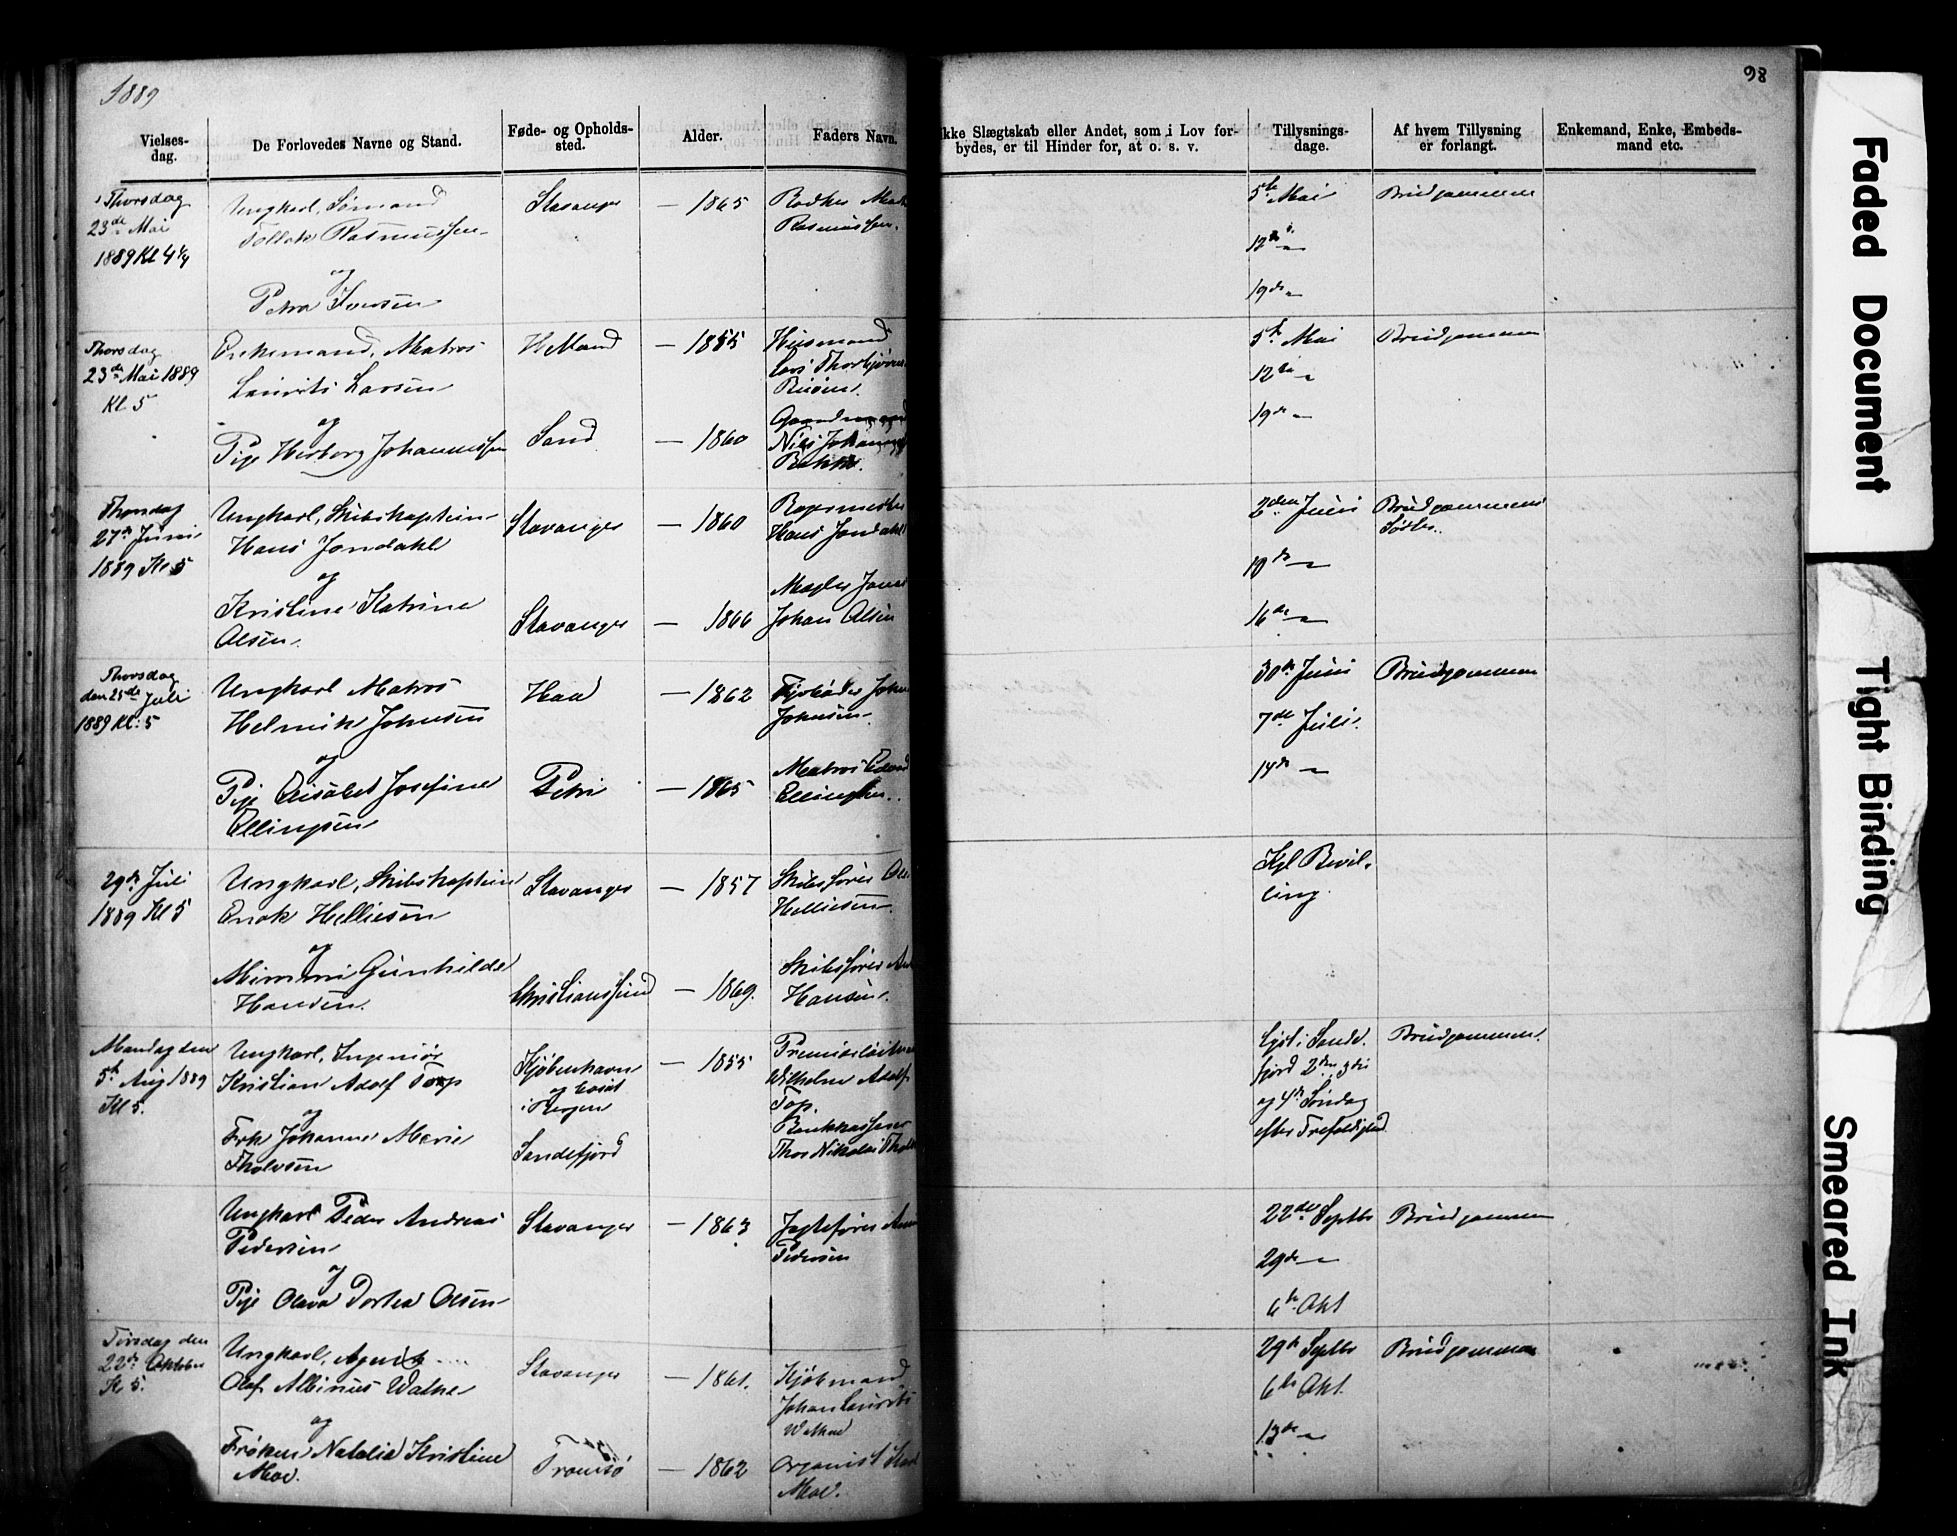 1889
98
Vielses-
dag.
De Forlovedes Navne og Stand.
Føde- og Opholds-
sted.
Alder.
Faders Navn.
kke Slægtskab eller Andet, som i Lov for-
bydes, er til Hinder for, at o. s. v.
Tillysnings-
dage.
Af hvem Tillysning
er forlangt.
Enkemand, Enke, Embeds-
mand etc.
Thorsdag
23de Mai
1889 Kl 4¼
Ungkarl, Sømand
Tollak Rasmussen
og
Petra Iversen
Stavanger
— 1865
Rødker
Rasmussen.
5te Mai
12te "
19de "
Brudgommen
Thorsdag
23de Mai 1889
Kl 5
Enkemand, Matros
Lauritz Larsen
og
Pige Herborg Johannessen
Helland
Sand
— 1855
— 1860
Husmand
Lars Thorbjørn
Gaardmand
Nils Johannes
Bakke.
5te Mai
12te "
19de "
Brudgommen
Thorsdag
27de Juni
1889 Kl 5
Ungkarl, Skibskaptein
Hans Jondahl
og
Kristine Katrine
Olsen.
Stavanger
Stavanger
— 1860
— 1866
Hans Jondahl
Mægler Jonas
Johan Olsen
2den Juni
10de "
16de "
Brudgommens
Søster.
Thorsdag
den 25de Juli
1889 Kl. 5
Ungkarl Matros
Helmik Johnsen
og
Pige Elisabet Josefine
Ellingsen
Haa
Petri
— 1862
— 1865
Johnsen.
Matros Edvard
Ellingsen.
30te Juni
7de Juli
14de "
Brudgommen
29de Juli
1889 Kl 5
Ungkarl, Skibskaptein
Enok Helliesen
og
Mimmi Gunhilde
Hansen.
Stavanger
Christianssund
— 1857
— 1869.
Skibsfører Ole
Helliesen.
Skibsfører
Hansen.
Kgl Bevil-
ling.
Mandag den
5te Aug 1889
Kl 5.
Ungkarl, Ingeniør
Kristian Adolf Torp
og
Frk Johanne Marie
Tholvsen
Kjøbenhavn
og bosat
i Bergen
Sandefjord
— 1855
Premierløitnant
Wilhelm Adolf
Bankkasserer
Thor Nikolai
Lyst i Sande-
fjord 2den 3die
og 4de Søndag
efter Trefoldighed
Brudgommen.
Ungkarl Peder Andreas
Pedersen
og
Pige Olava Dortea Olsen
Stavanger
— 1863
Jagtefører
Pedersen
22de Septbr
29de "
6te Okt
Brudgommen
Tirsdag den
22de Oktober
Kl 5.
Ungkarl, Agent
Olaf Albinus Watne
og
Frøken Natalia Kristine
Moe.
Stavanger
Tromsø
— 1861.
— 1862
Kjøbmand
Johan Laurits
Watne
Organist
Moe.
29de Septbr
6te Okt.
13de "
Brudgommen
Faded Document
Tight Binding
Smeared Ink